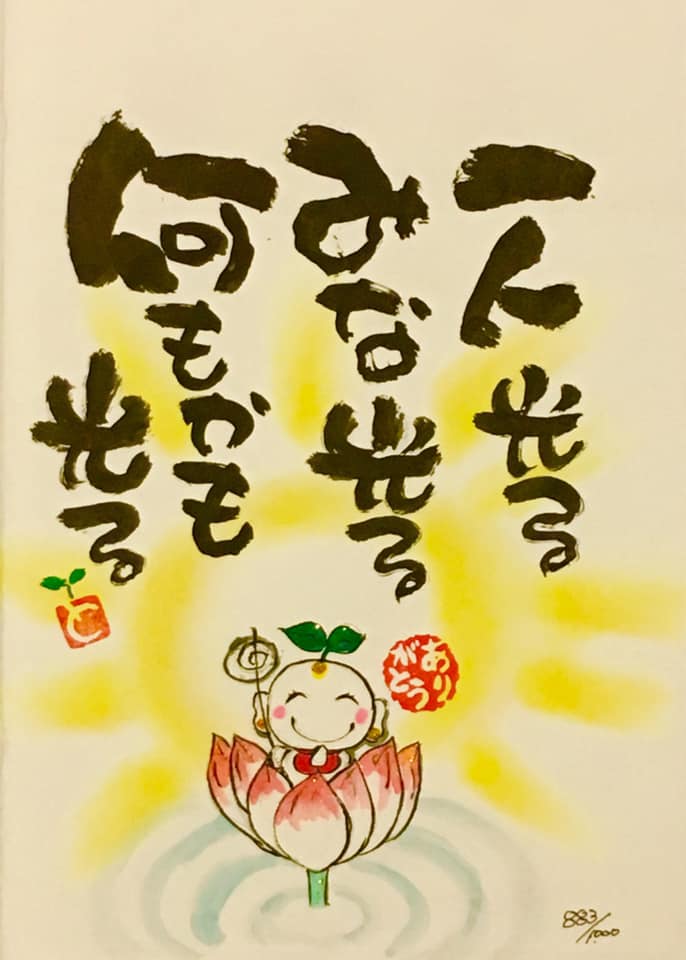 一人光る
みな光る
何もかも
光る
と
あり
がとう
883/1000